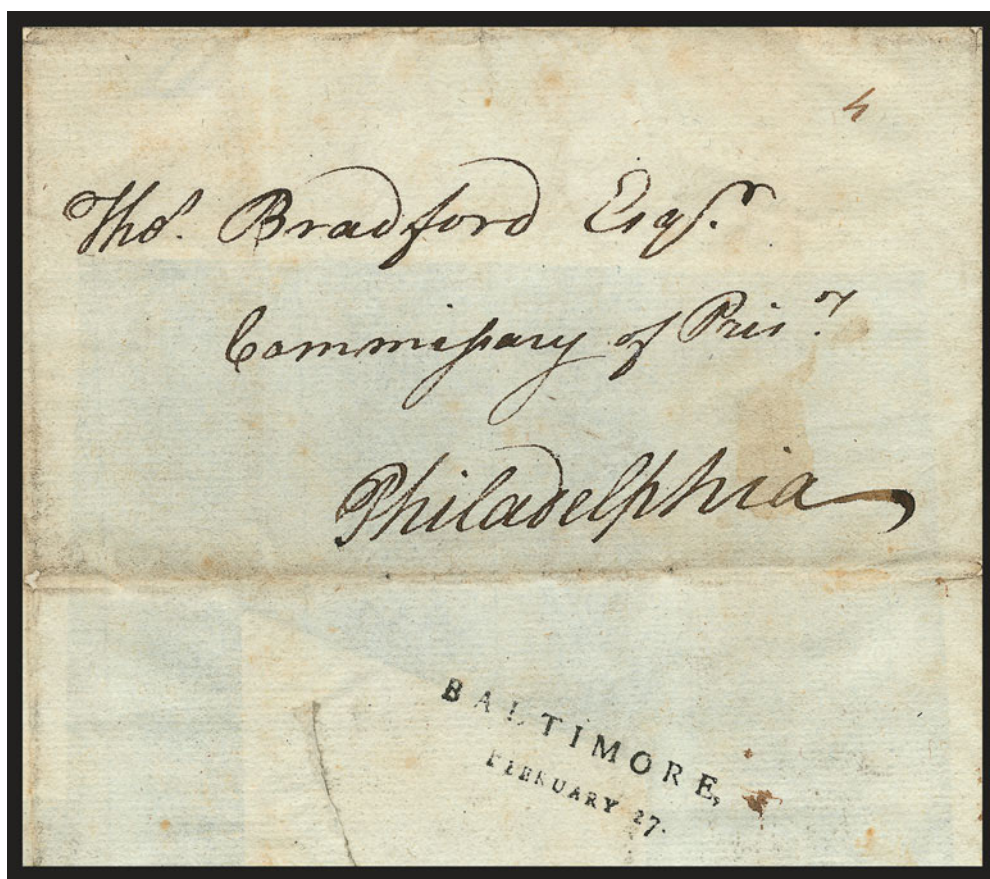 4
Thoˢ. Bradford Esqʳ.
Commissary of Prisʳ.
Philadelphia
BALTIMORE,
FEBRUARY 27.